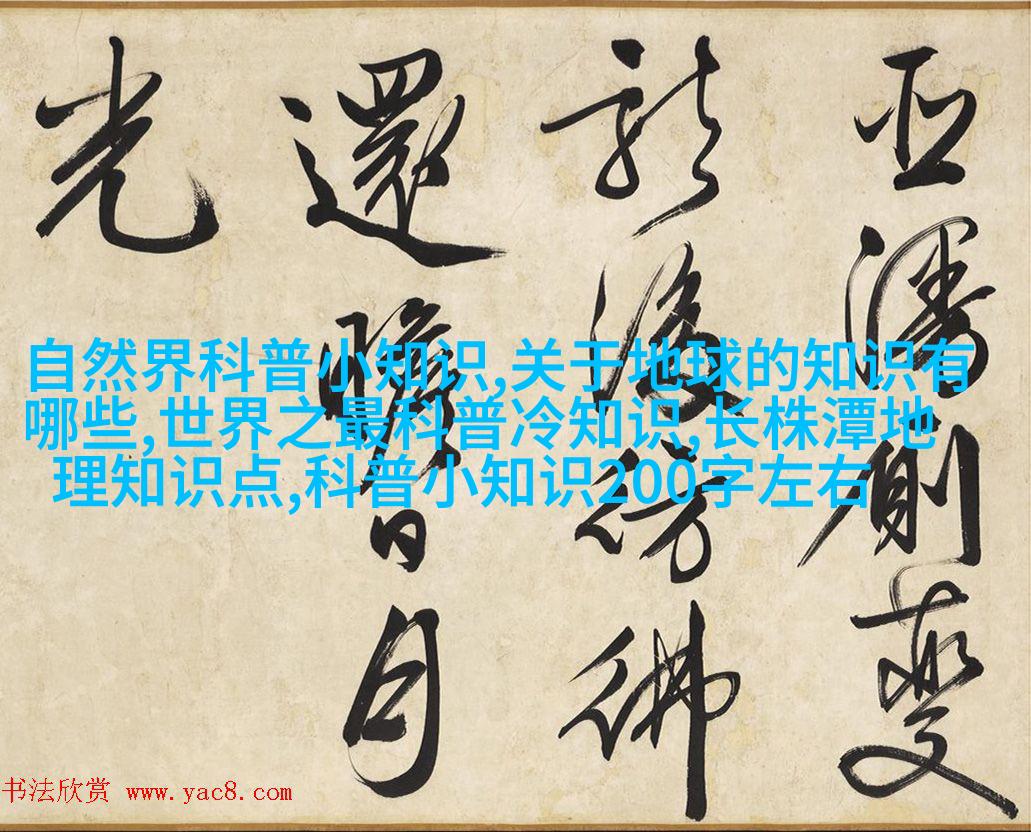 潘側變
後彷彿
還瞻日月
光
自然界科普小知识,关于地球的知识有
哪些,世界之最科普冷知识,长株潭地
理知识点,科普小知识200字左右
书法欣赏 www.yac8.com